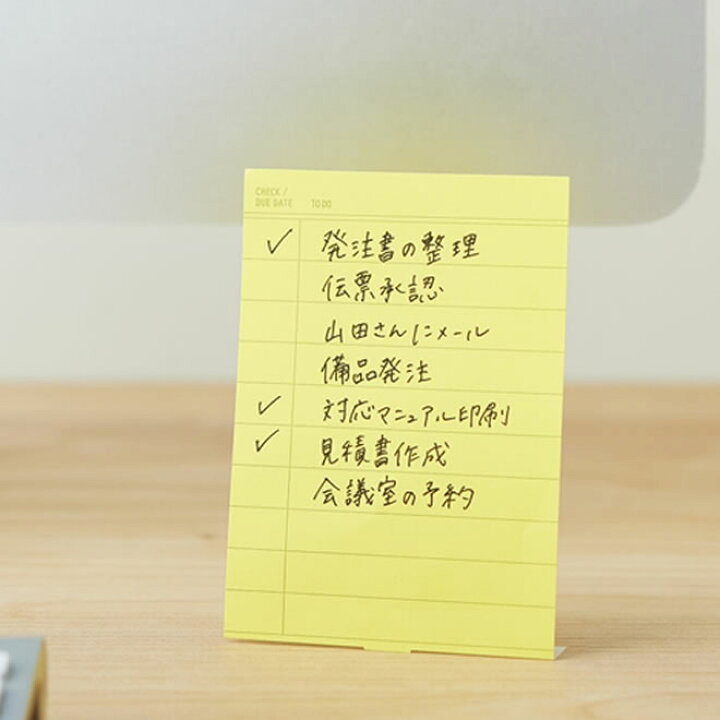 CHECK /
DUE DATE TO DO
✓ 発注書の整理
伝票承認
山田さんにメール
備品発注
✓ 対応マニュアル印刷
✓ 見積書作成
会議室の予約